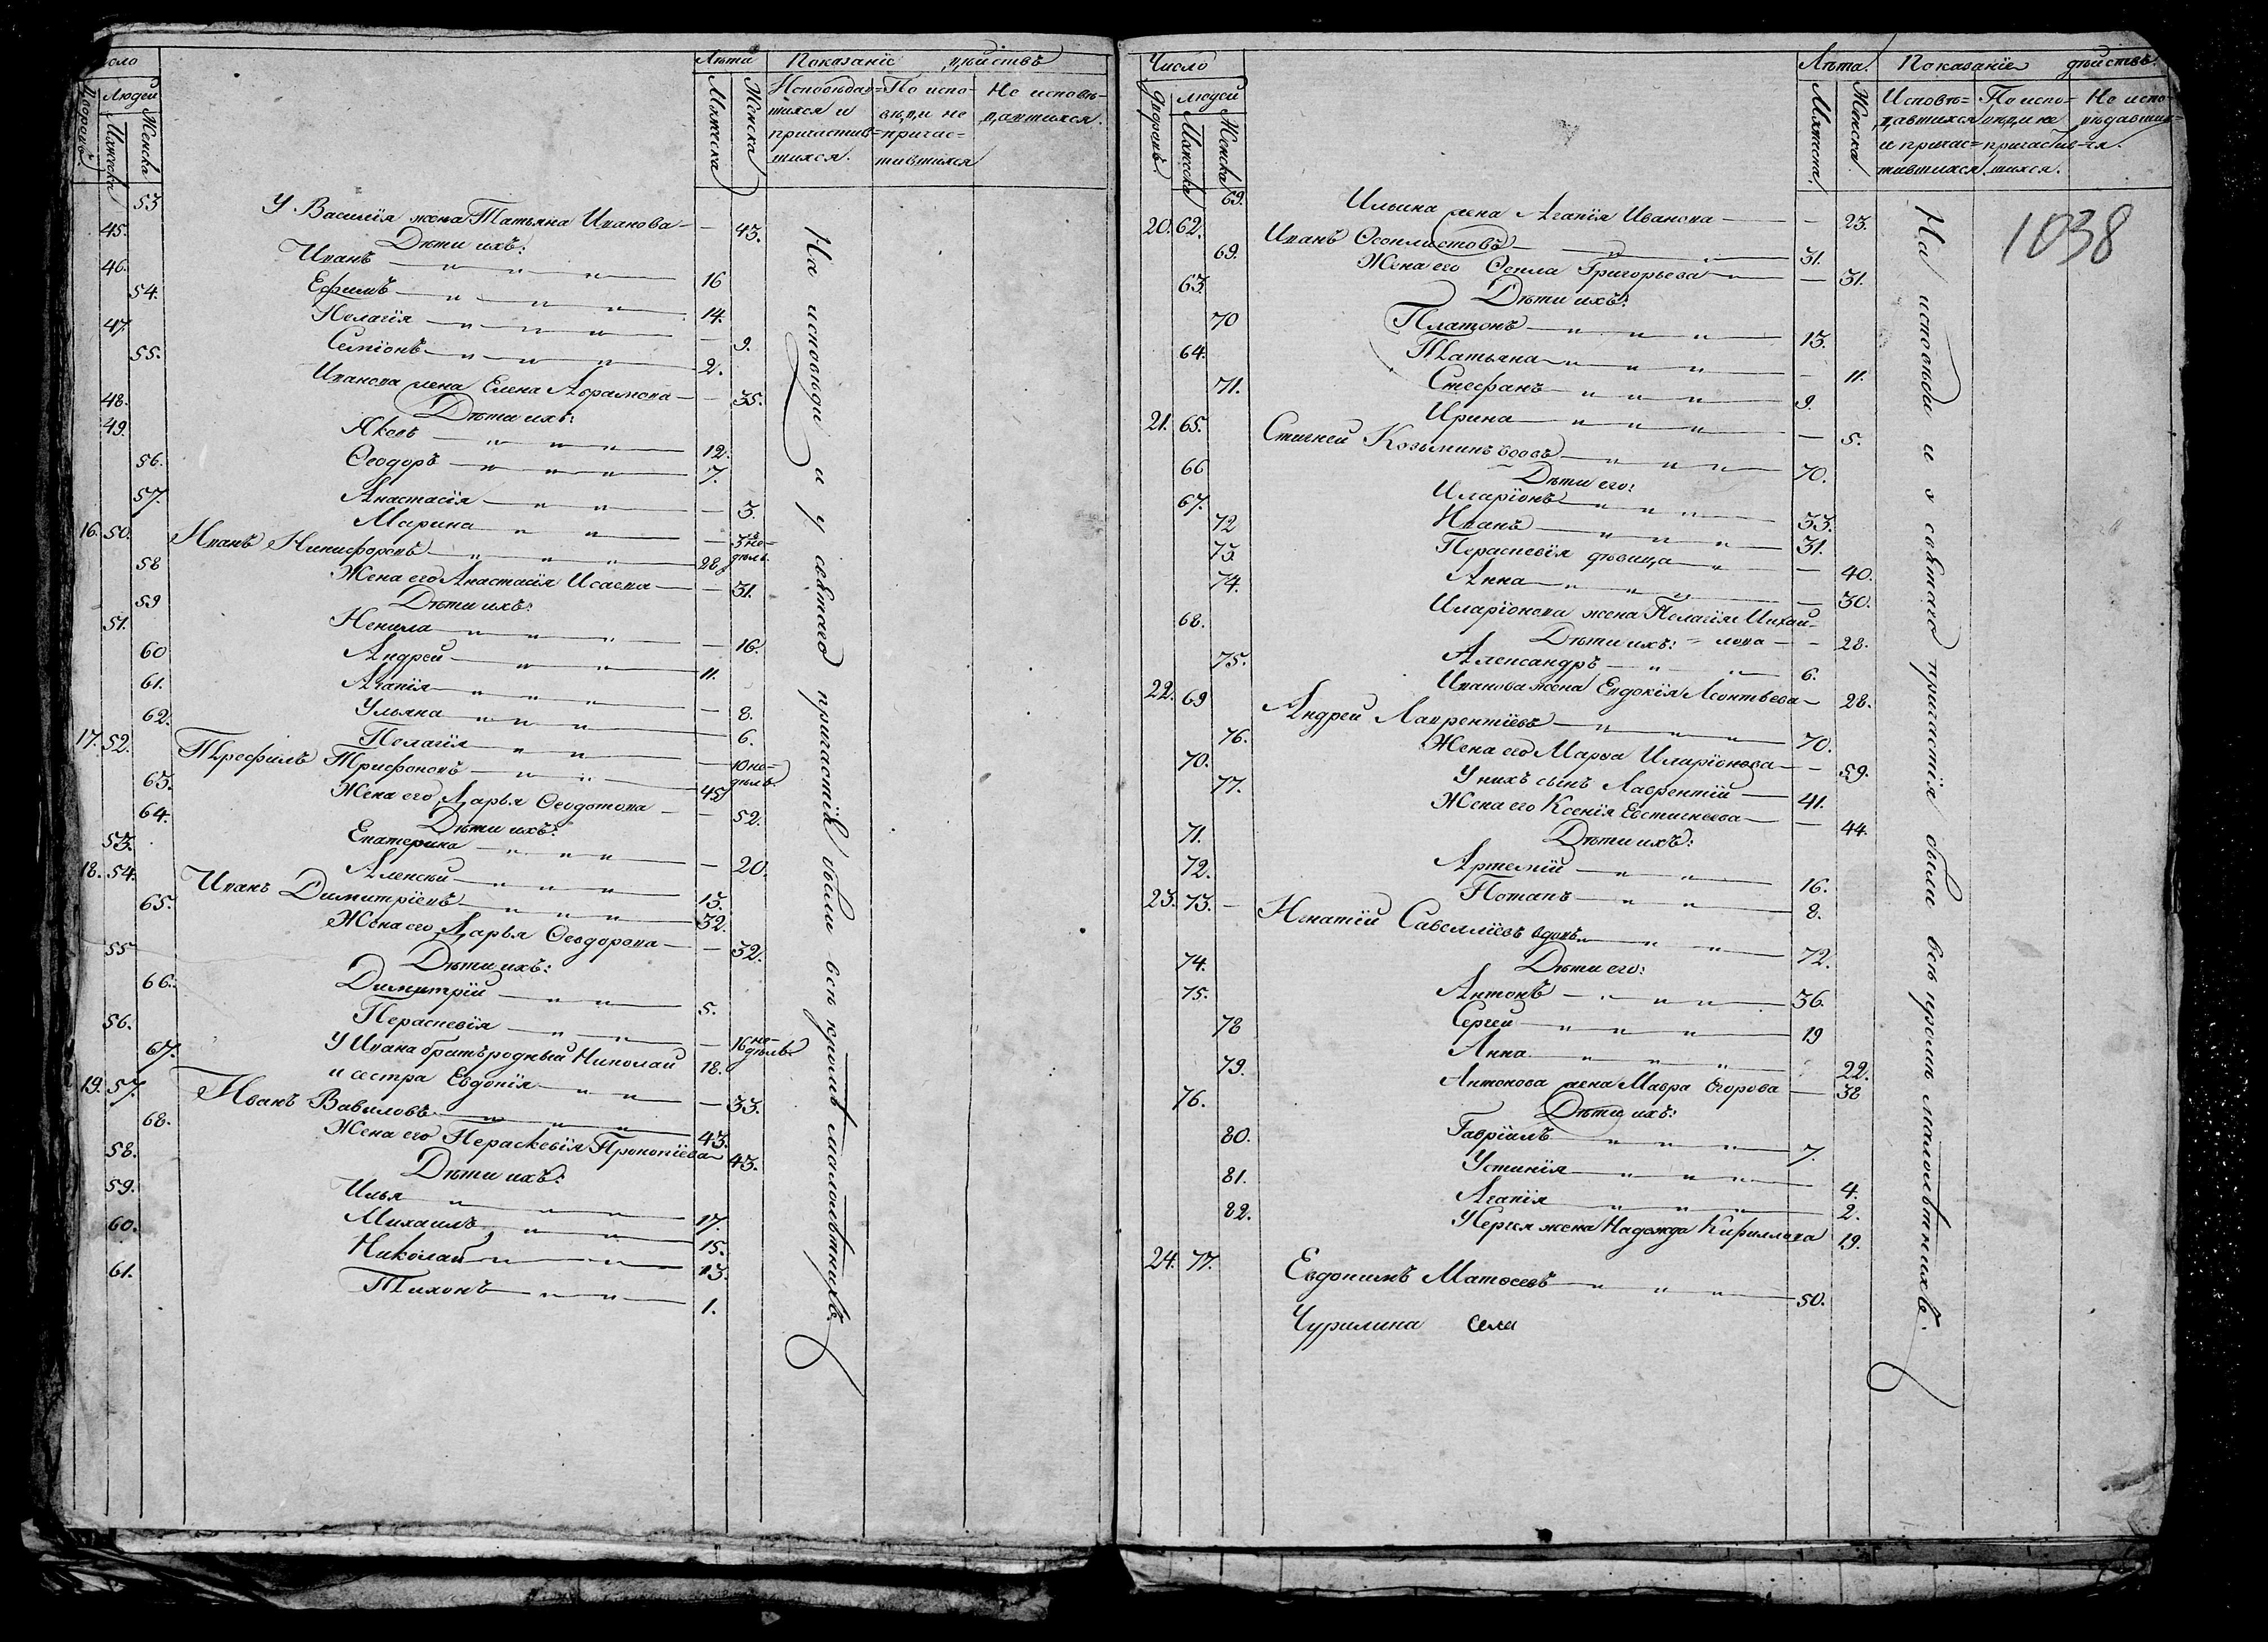 Число
Людей
Дворовъ
Мужеска
Женска
Лѣта
Мужеска
Женска
Показаніе дѣйствъ
Исповѣдав=
шихся и
причастив=
шихся.
По испо-
вѣди не
причас=
тившихся
Не исповѣ-
давшихся.
53 У Василія жена Татьяна Иванова — — 43.
Дѣти ихъ:
45. Иванъ — 16
46. Ефимъ — 14.
54. Пелагія — — 9.
47. Симіонъ — 2.
55. Иванова жена Елена Абрамова — — 35.
Дѣти ихъ:
48. Яковъ — 12.
49. Ѳеодоръ — 7.
56. Анастасія — — 3.
57. Марина — — 3 не-
дѣль
16. 50. Иванъ Никифоровъ — 28
58 Жена его Анастасія Исаева — — 31.
Дѣти ихъ:
59 Ненила — — 16.
51. Андрей — 11.
60 Агапія — — 8.
61. Ульяна — 6.
62. Пелагія — — 10 не-
дѣль.
17. 52. Трефилъ Трифоновъ — 45
63. Жена его Дарья Ѳеодотова — — 52.
Дѣти ихъ:
64. Екатерина — — 20.
53. Алексѣй — 13.
18. 54. Иванъ Димитріевъ — 32.
65. Жена его Дарья Ѳеодорова — — 32.
Дѣти ихъ:
55 Димитрій — 5.
66. Параскевія — — 16 не-
дѣль.
56. У Ивана братъ родный Николай 18.
67. и сестра Евдокія — — 33.
19. 57. Иванъ Вавиловъ — 43.
68. Жена его Параскевія Прокопіева 43.
Дѣти ихъ:
58. Илья — 17.
59. Михаилъ — 15.
60. Николай — 13.
61. Тихонъ — 1.
На исповѣди и у святаго причастія были всѣ кромѣ малолѣтнихъ.
Число
Дворовъ.
Людей
Мужеска
Женска
Лѣта.
Мужеска
Женска
Показаніе дѣйствъ.
Исповѣ=
давшихся
и причас=
тившихся.
По испо-
вѣди не
причастив=
шихся.
Не испо-
вѣдавших=
ся.
1038
69. Ильина жена Агапія Иванова — — 23.
20. 62. Иванъ Ѳеоклистовъ — 31.
69. Жена его Ѳекла Григорьева — — 31.
Дѣти ихъ:
63. Платонъ — 13.
70 Татьяна — — 11.
64. Стефанъ — 9.
71. Ирина — — 5.
21. 65. Стигней Козьминъ вдовъ — 70.
Дѣти его:
66 Иларіонъ — 33.
67. Иванъ — 31.
72 Параскевія дѣвица — — 40.
73. Анна — — 30.
74. Иларіонова жена Пелагія Михай-
лова — — 28.
Дѣти ихъ:
68. Александръ — 6.
75. Иванова жена Евдокія Леонтьева — 28.
22. 69 Андрей Лаврентіевъ — 70.
76. Жена его Марѳа Иларіонова — — 59.
70. У нихъ сынъ Лаврентій — 41.
77. Жена его Ксенія Евстигнеева — — 44.
Дѣти ихъ:
71. Артемій — 16.
72. Потапъ — 8.
23. 73. — Игнатій Савелліевъ вдовъ — 72.
Дѣти его:
74. Антонъ — 36.
75. Сергей — 19
78 Анна — 22.
79. Антонова жена Мавра Егорова — 38
Дѣти ихъ:
76. Гавріилъ — 7.
80. Устинія — 4.
81. Агапія — 2.
82. У Сергея жена Надежда Кирилова 19.
24. 77. Евдокимъ Матвеевъ — 50.
Чурилина села
На исповѣди и у святаго причастія были всѣ кромѣ малолѣтнихъ.